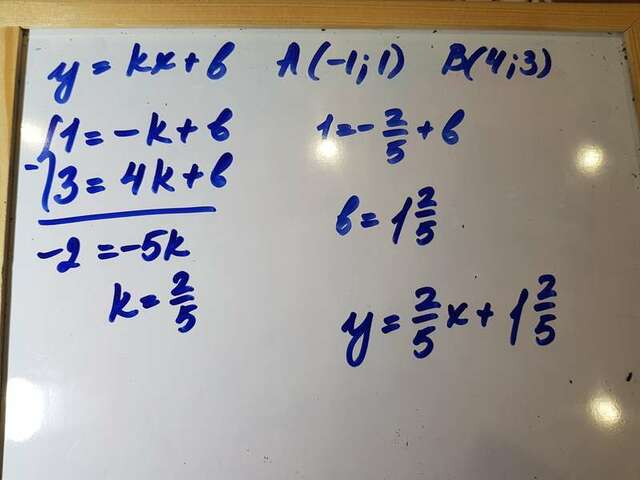 y = kx + b   A(-1; 1)   B(4; 3)
1 = -k + b
- 3 = 4k + b
-2 = -5k
k = 2/5
1 = - 2/5 + b
b = 1 2/5
y = 2/5 x + 1 2/5